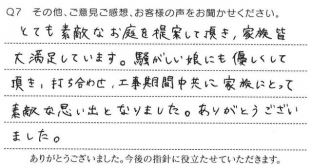 Q7 その他、ご意見ご感想、お客様の声をお聞かせください。
とても素敵なお庭を提案して頂き、家族皆
大満足しています。騒がしい娘にも優しくして
頂き、打ち合わせ、工事期間中共に家族にとって
素敵な思い出となりました。ありがとうござい
ました。
ありがとうございました。今後の指針に役立たせていただきます。